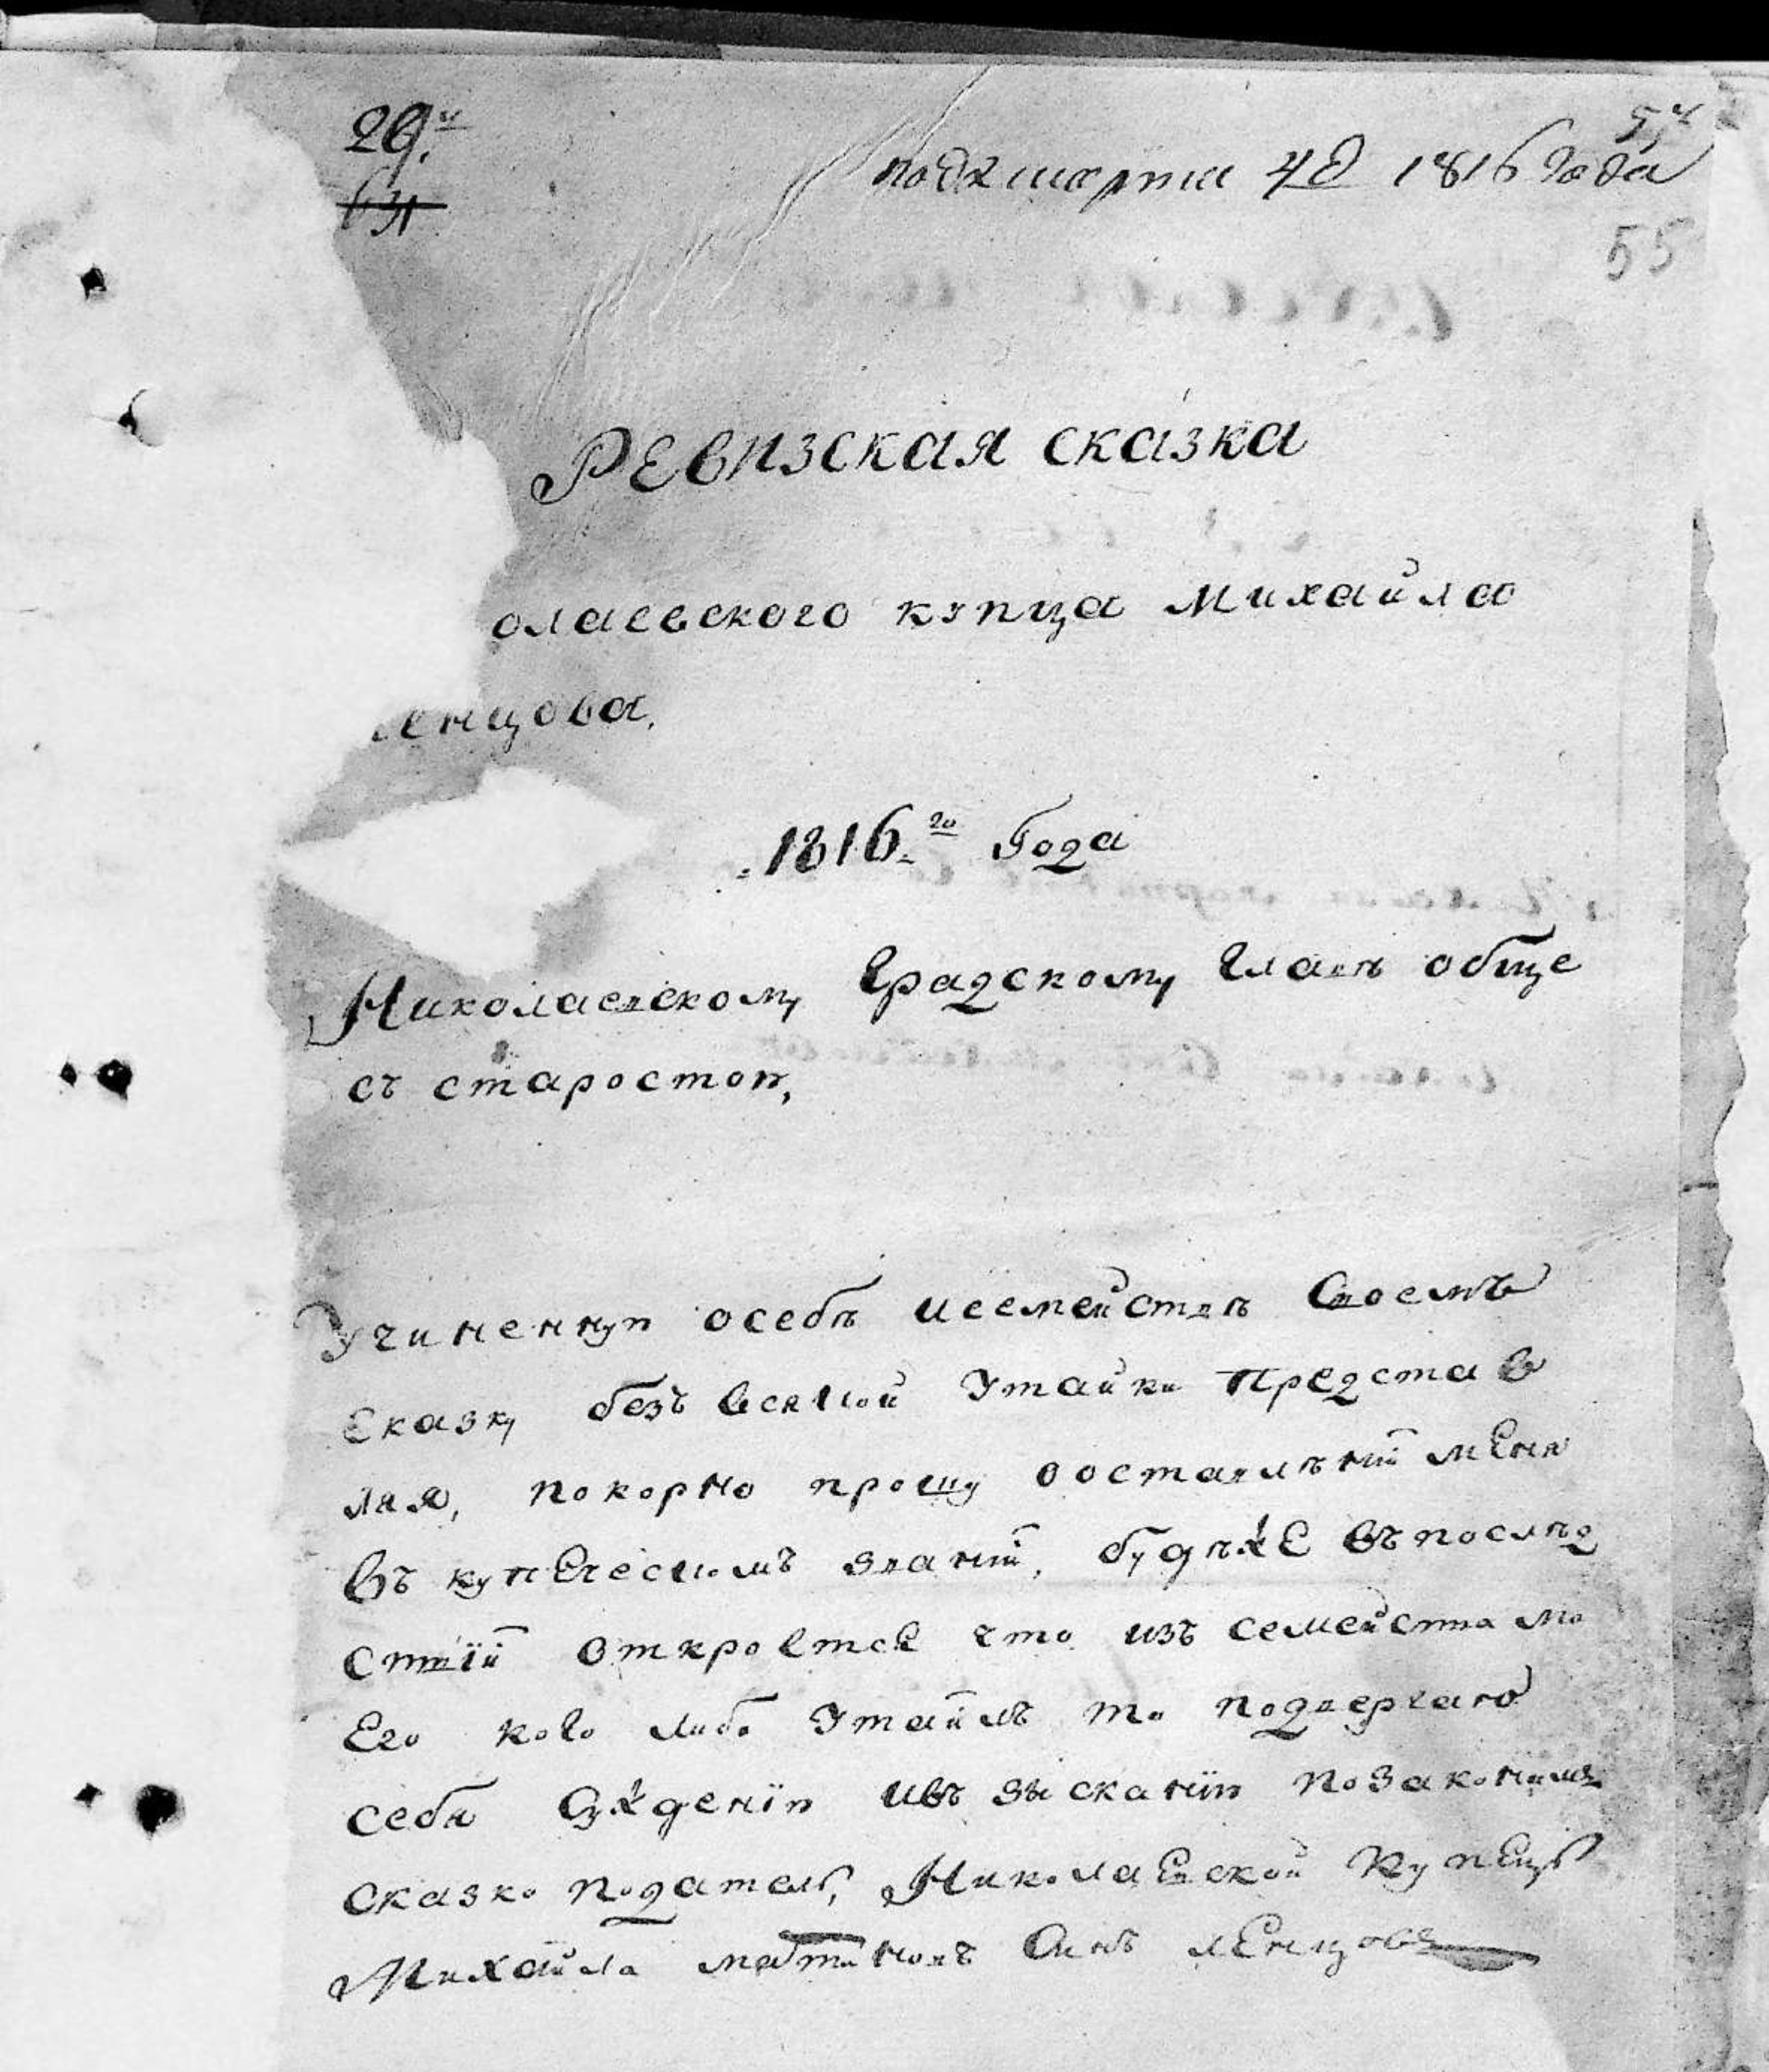 29.й
631
5,й
под: марта 4 д 1816 года
55
Ревизская сказка
олаевского купца Михайла
енцова,
1816.го Года
Николаевскому Градскому Главѣ обще
съ старостою,
Учиненную осебѣ исемействѣ Своемъ
Сказку безъ всякой Утайки Представ
ляя, покорно прошуооставлѣнїи меня
Въ купеческомъ званїи, будѣже Въпослѣд
ствїи откроется что изъ семейства мо
Его кого либо Утаилъ то подвергаю
себя Сужденїю ивъ зысканїю позакономъ
сказко податель, Николаевской Купецъ
Михайла Сынъ лЕнцовъ